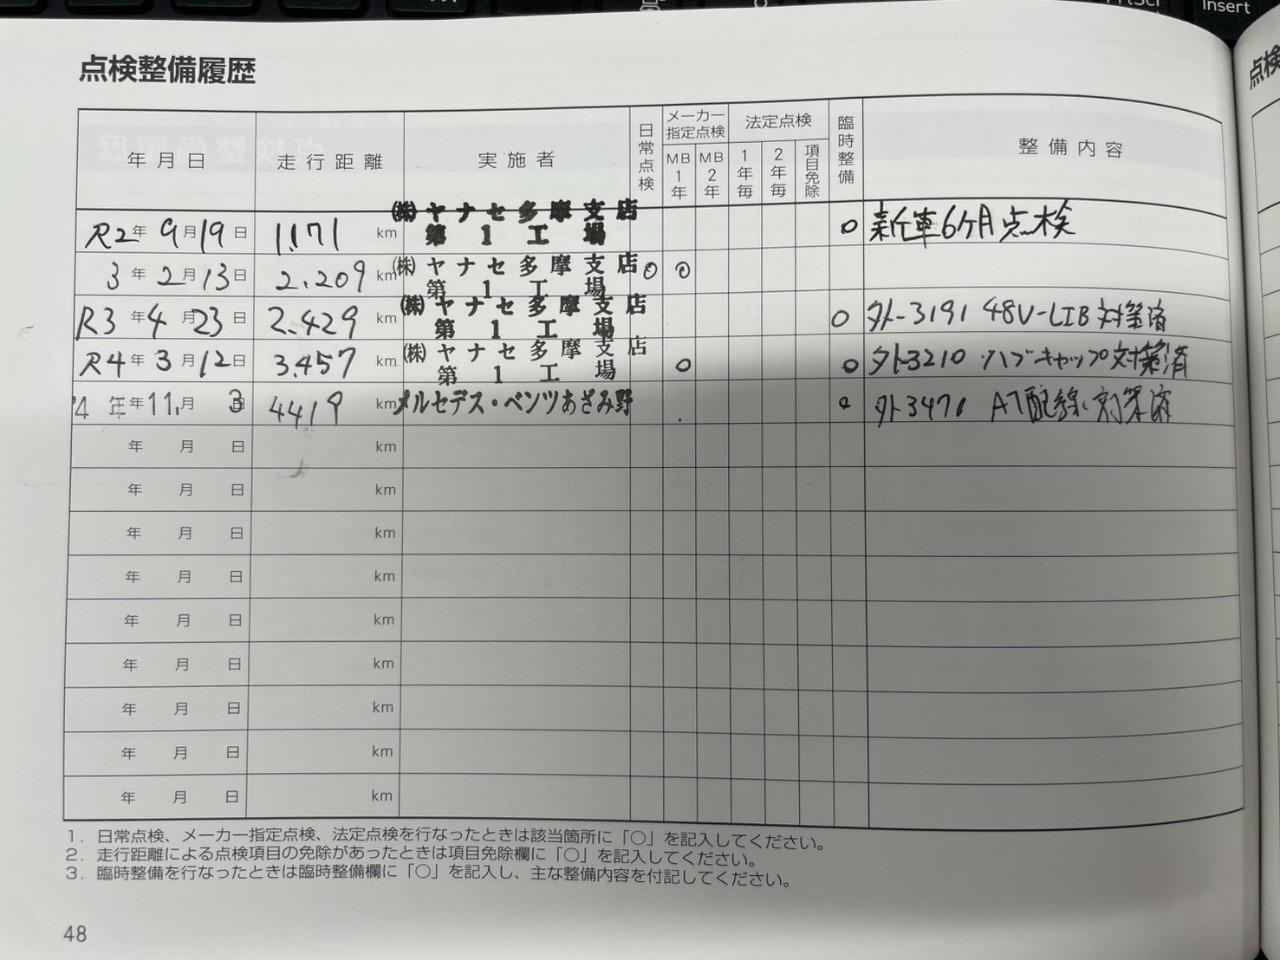 Insert
点検整備履歴
年月日 走行距離 実施者 日常点検 メーカー指定点検 MB1年 MB2年 法定点検 1年毎 2年毎 項目免除 臨時整備 整備内容
R2年 9月19日 1,171 km ㈱ヤナセ多摩支店 第1工場 ○ 新車6ケ月点検
3年 2月13日 2.209 km ㈱ヤナセ多摩支店 第1工場 ○ ○
R3年 4月23日 2.429 km ㈱ヤナセ多摩支店 第1工場 ○ 外-3191 48V-LIB対策済
R4年 3月12日 3.457 km ㈱ヤナセ多摩支店 第1工場 ○ ○ 外3210 ハブキャップ対策済
'4年年11.月 3日 4419 km メルセデス・ベンツあざみ野 ○ 外3471 AT配線対策済
年 月 日 km
年 月 日 km
年 月 日 km
年 月 日 km
年 月 日 km
年 月 日 km
年 月 日 km
年 月 日 km
年 月 日 km
1．日常点検、メーカー指定点検、法定点検を行なったときは該当箇所に「○」を記入してください。
2．走行距離による点検項目の免除があったときは項目免除欄に「○」を記入してください。
3．臨時整備を行なったときは臨時整備欄に「○」を記入し、主な整備内容を付記してください。
48
点検